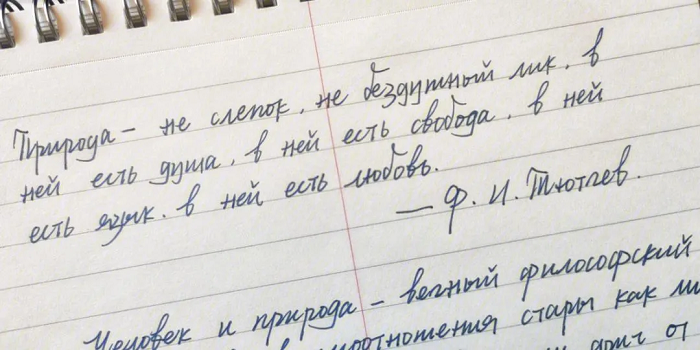 Природа - не слепок, не бездушный лик, в
ней есть душа, в ней есть свобода, в ней
есть язык, в ней есть любовь.
— Ф. И. Тютчев.
Человек и природа - вечный философский
стары как